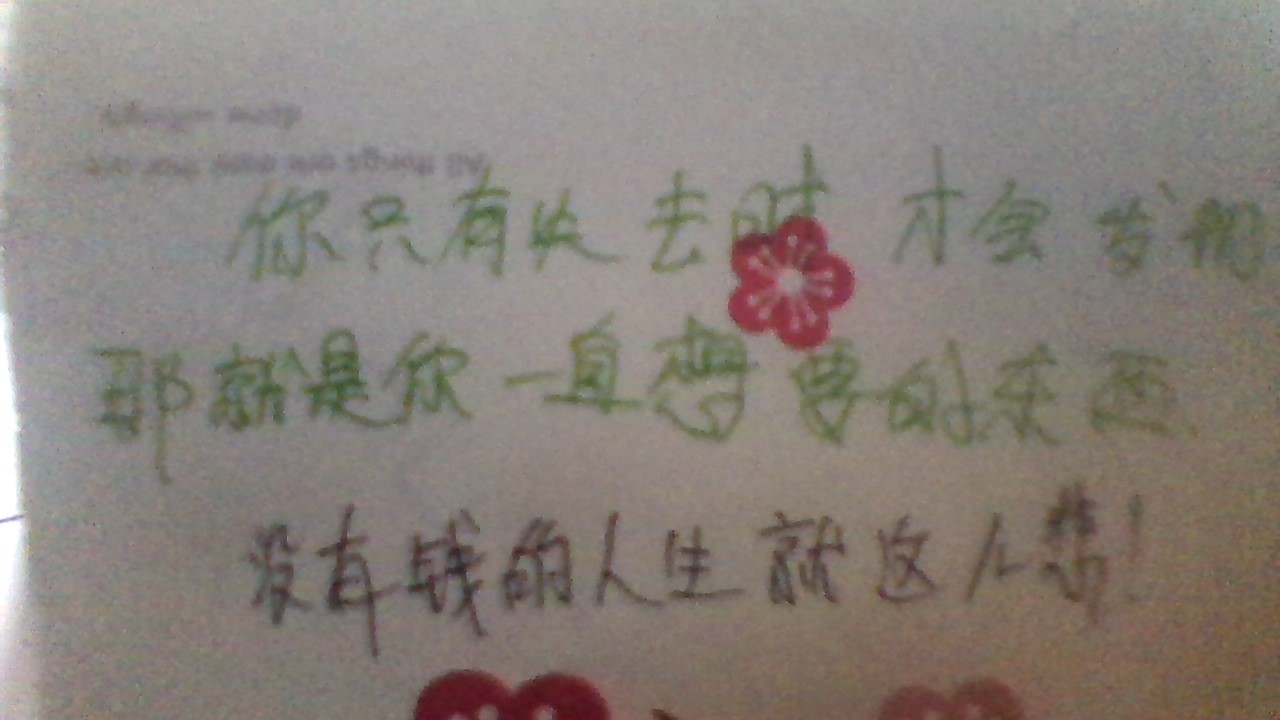 你只有失去时才会发现
那就是你一直想要的东西
没有钱的人生就这么悲!